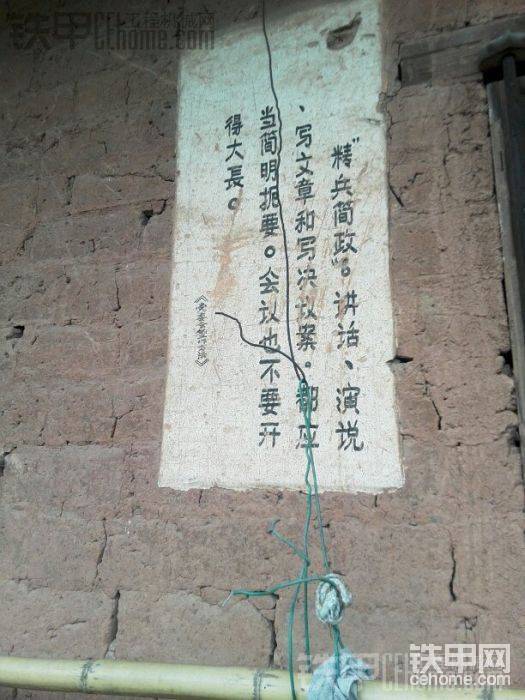 “精兵简政”。讲话、演说
、写文章和写决议案。都应
当简明扼要。会议也不要开
得太长。
《党委会的工作方法》
铁甲工程机械网
Cehome.com
铁甲网
cehome.com